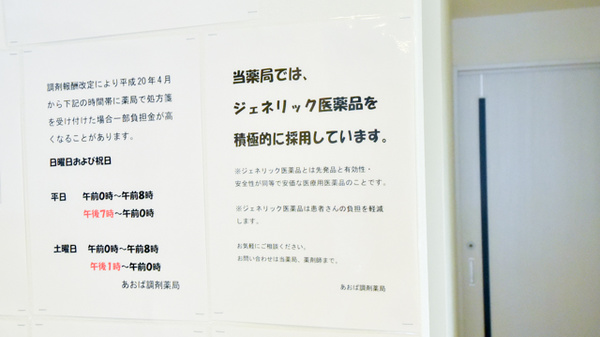 調剤報酬改定により平成20年4月
から下記の時間帯に薬局で処方箋
を受け付けた場合一部負担金が高
くなることがあります。
日曜日および祝日
平日 午前0時～午前8時
午後7時～午前0時
土曜日 午前0時～午前8時
午後1時～午前0時
あおば調剤薬局
当薬局では、
ジェネリック医薬品を
積極的に採用しています。
※ジェネリック医薬品とは先発品と有効性・
安全性が同等で安価な医療用医薬品のことです。
※ジェネリック医薬品は患者さんの負担を軽減
します。
お気軽にご相談ください。
お問い合わせは当薬局、薬剤師まで。
あおば調剤薬局